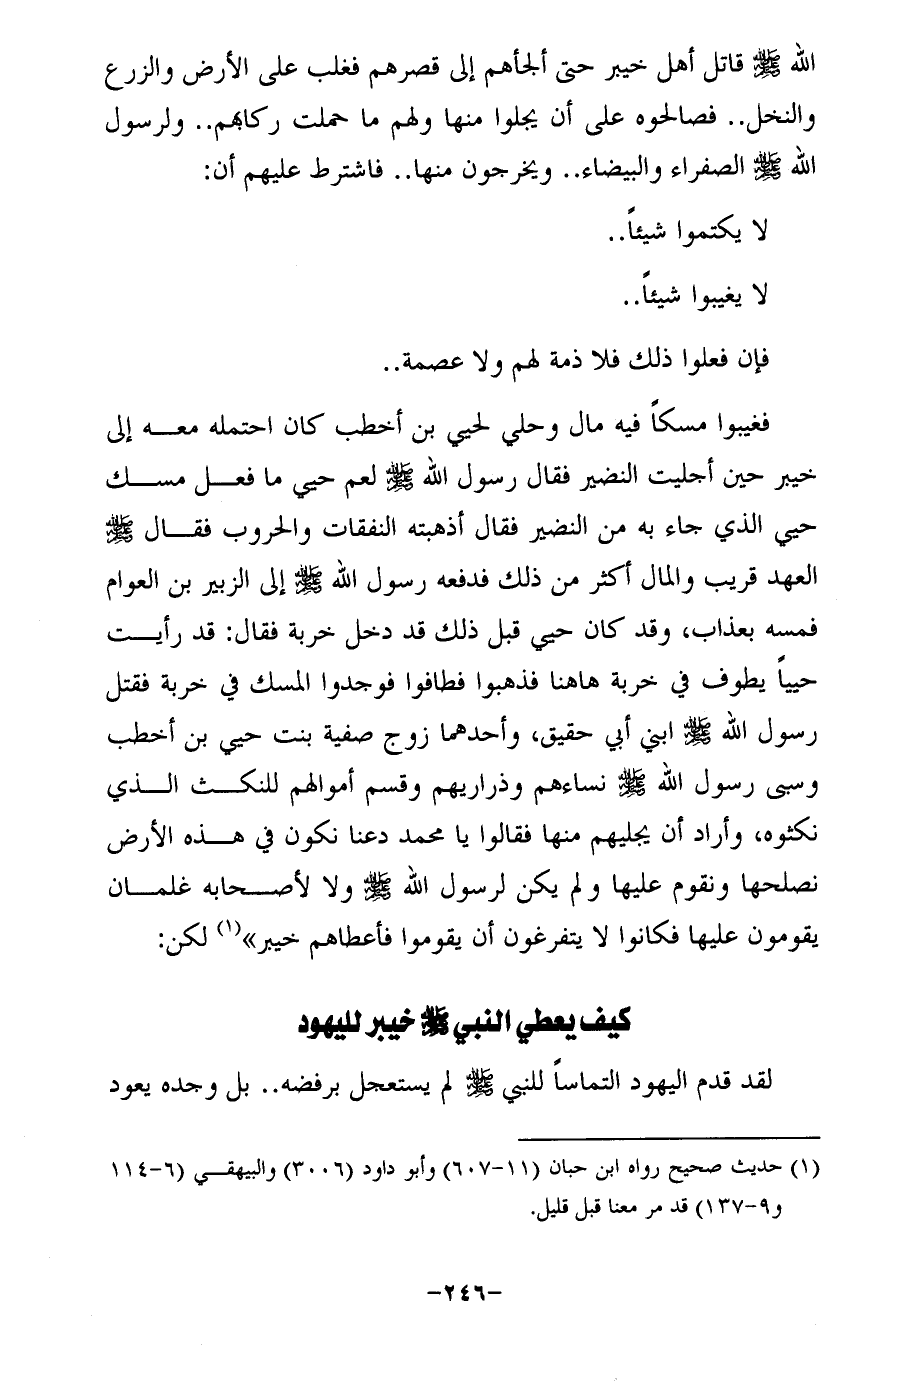 الله ﷺ قاتل أهل خيبر حتى ألجأهم إلى قصرهم فغلب على الأرض والزرع
والنخل.. فصالحوه على أن يجلوا منها ولهم ما حملت ركابهم.. ولرسول
الله ﷺ الصفراء والبيضاء.. ويخرجون منها.. فاشترط عليهم أن:
لا يكتموا شيئاً..
لا يغيبوا شيئاً..
فإن فعلوا ذلك فلا ذمة لهم ولا عصمة..
فغيبوا مسكاً فيه مال وحلي لحيي بن أخطب كان احتمله معه إلى
خيبر حين أجليت النضير فقال رسول الله ﷺ لعم حيي ما فعل مسك
حيي الذي جاء به من النضير فقال أذهبته النفقات والحروب فقال ﷺ
العهد قريب والمال أكثر من ذلك فدفعه رسول الله ﷺ إلى الزبير بن العوام
فمسه بعذاب، وقد كان حيي قبل ذلك قد دخل خربة فقال: قد رأيت
حيياً يطوف في خربة هاهنا فذهبوا فطافوا فوجدوا المسك في خربة فقتل
رسول الله ﷺ ابني أبي حقيق، وأحدهما زوج صفية بنت حيي بن أخطب
وسبى رسول الله ﷺ نساءهم وذراريهم وقسم أموالهم للنكث الذي
نكثوه، وأراد أن يجليهم منها فقالوا يا محمد دعنا نكون في هذه الأرض
نصلحها ونقوم عليها ولم يكن لرسول الله ﷺ ولا لأصحابه غلمان
يقومون عليها فكانوا لا يتفرغون أن يقوموا فأعطاهم خيبر»(١) لكن:
كيف يعطي النبي ﷺ خيبر لليهود
لقد قدم اليهود التماساً للنبي ﷺ لم يستعجل برفضه.. بل وجده يعود
(١) حديث صحيح رواه ابن حبان (١١-٦٠٧) وأبو داود (٣٠٠٦) والبيهقي (٦-١١٤
و٩-١٣٧) قد مر معنا قبل قليل.
-٢٤٦-